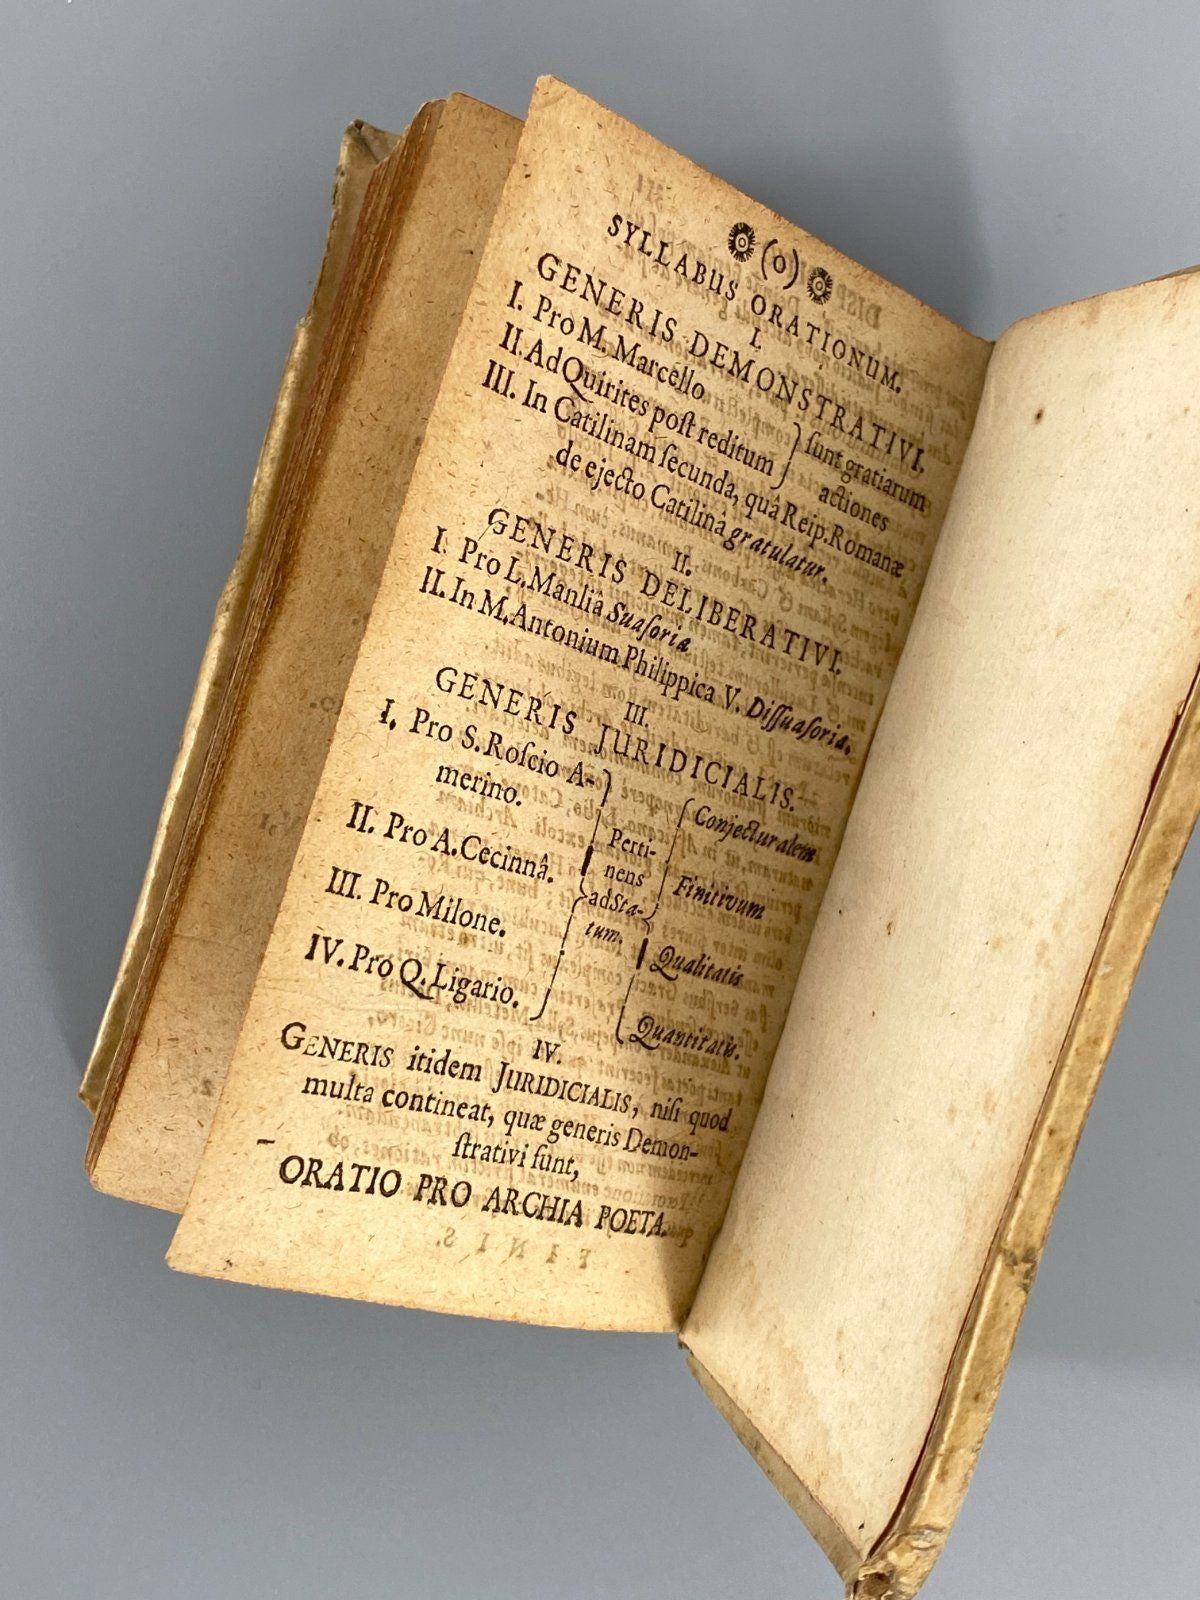 (o)
SYLLABUS ORATIONUM.
I.
GENERIS DEMONSTRATIVI.
I. Pro M. Marcello
II. Ad Quirites poſt reditum } ſunt gratiarum actiones
III. In Catilinam ſecunda, quâ Reip. Romanæ
de ejecto Catilinâ gratulatur.
II.
GENERIS DELIBERATIVI.
I. Pro L. Manliâ Suaſoria
II. In M. Antonium Philippica V. Diſſuaſoria.
III.
GENERIS JURIDICIALIS.
I. Pro S. Roſcio A-
merino.
II. Pro A. Cecinnâ.
III. Pro Milone.
IV. Pro Q. Ligario.
Perti-
nens
ad Sta-
tum.
Conjecturalem
Finitivum
Qualitatis
Quantitatis.
IV.
GENERIS itidem JURIDICIALIS, niſi quod
multa contineat, quæ generis Demon-
ſtrativi ſunt,
ORATIO PRO ARCHIA POETA.